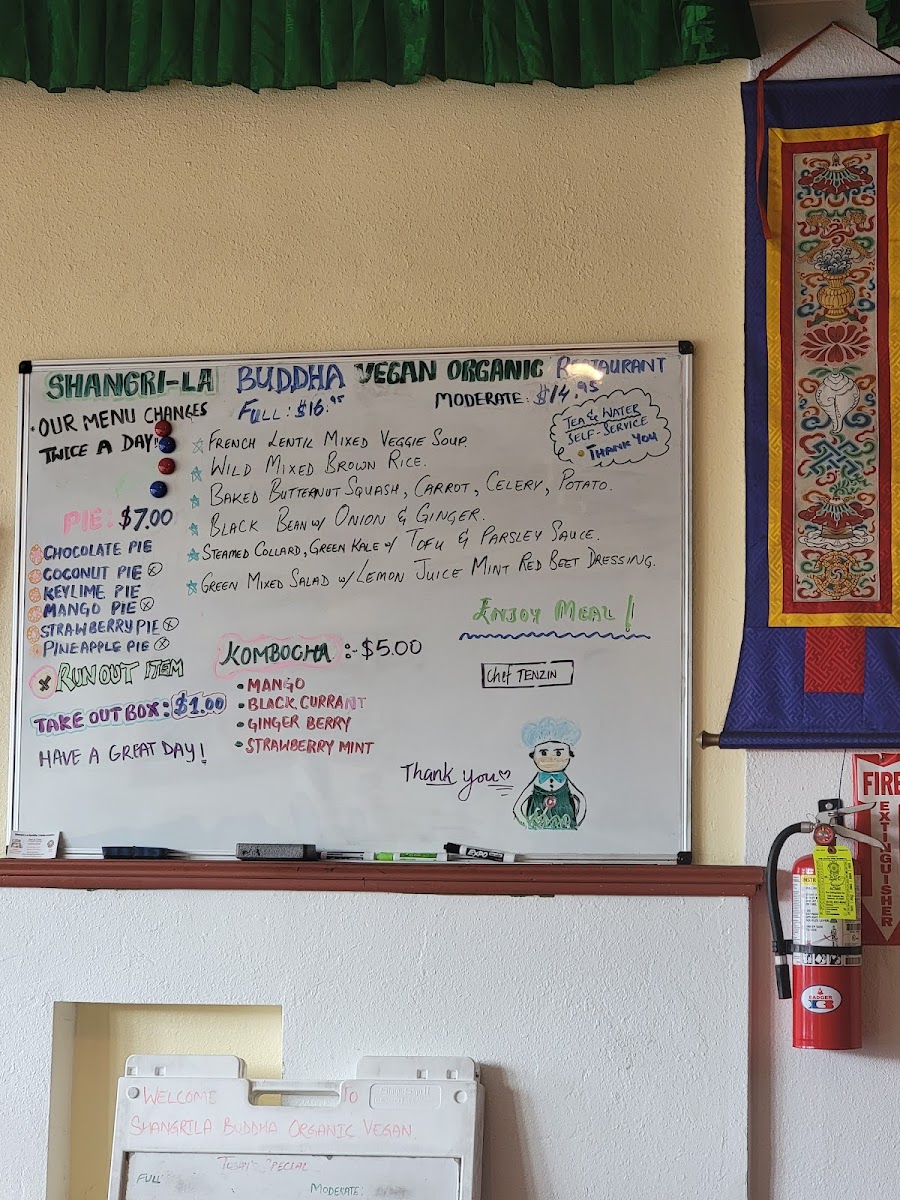 SHANGRI-LA BUDDHA VEGAN ORGANIC RESTAURANT
OUR MENU CHANGES
TWICE A DAY!
FULL: $16.95
MODERATE: $14.95
TEA & WATER
SELF-SERVICE
THANK YOU
FRENCH LENTIL MIXED VEGGIE SOUP.
WILD MIXED BROWN RICE.
BAKED BUTTERNUT SQUASH, CARROT, CELERY, POTATO.
BLACK BEAN W/ ONION & GINGER.
STEAMED COLLARD, GREEN KALE W/ TOFU & PARSLEY SAUCE.
GREEN MIXED SALAD W/ LEMON JUICE MINT RED BEET DRESSING.
ENJOY MEAL!
PIE: $7.00
CHOCOLATE PIE
COCONUT PIE ⓧ
KEYLIME PIE
MANGO PIE ⓧ
STRAWBERRY PIE ⓧ
PINEAPPLE PIE ⓧ
ⓧ RUN OUT ITEM
TAKE OUT BOX: $1.00
HAVE A GREAT DAY!
KOMBOCHA:-$5.00
• MANGO
• BLACK CURRANT
• GINGER BERRY
• STRAWBERRY MINT
Chef TENZIN
Thank you♡
EXPO
FIRE
EXTINGUISHER
BADGER
WELCOME TO
SHANGRILA BUDDHA ORGANIC VEGAN
TODAY'S SPECIAL
FULL
MODERATE: